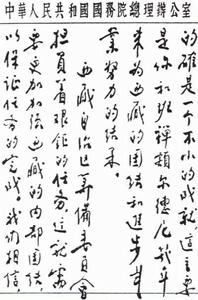 中華人民共和國國務院總理辦公室
的確是一个不小的成就，這主要
是你和班禅額尔德尼几年
来为西藏的团结和進步事
業努力的结果。
西藏自治区筹備委員会
担負着艰鉅的任务，这就需
要更加加强西藏的内部团结，
以保证任务的完成。我们相信，